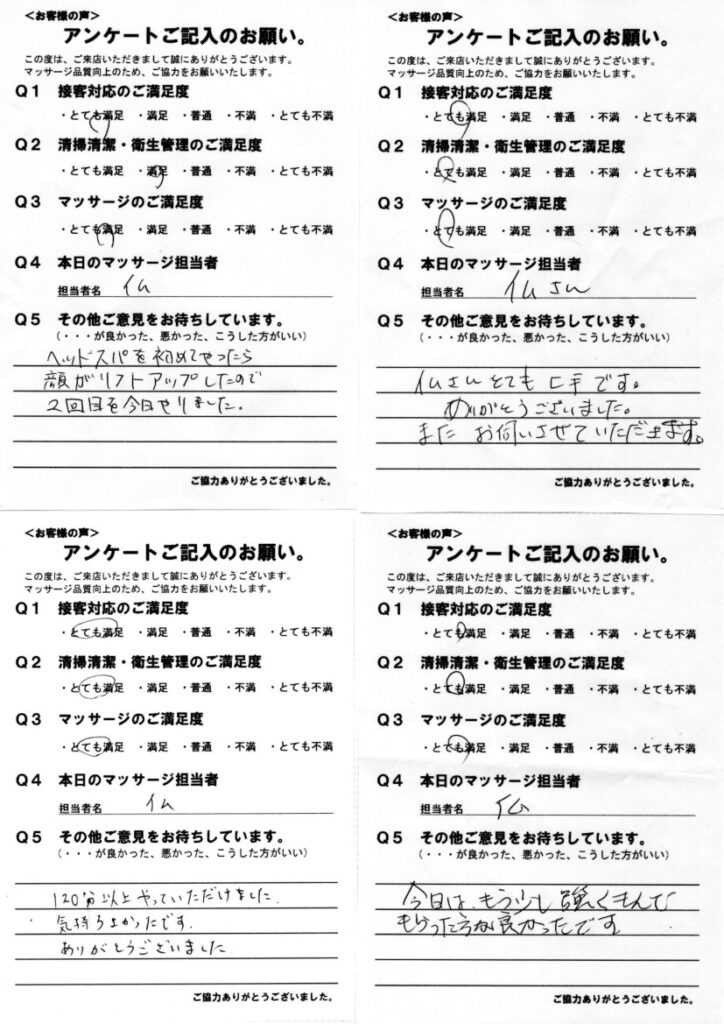 ＜お客様の声＞
アンケートご記入のお願い。
この度は、ご来店いただきまして誠にありがとうございます。
マッサージ品質向上のため、ご協力をお願いいたします。
Ｑ１ 接客対応のご満足度
・とても満足 ・満足 ・普通 ・不満 ・とても不満
Ｑ２ 清掃清潔・衛生管理のご満足度
・とても満足 ・満足 ・普通 ・不満 ・とても不満
Ｑ３ マッサージのご満足度
・とても満足 ・満足 ・普通 ・不満 ・とても不満
Ｑ４ 本日のマッサージ担当者
担当者名 仏
Ｑ５ その他ご意見をお待ちしています。
（・・・が良かった、悪かった、こうした方がいい）
ヘッドスパを初めてやったら
顔がリフトアップしたので
2回目を今日やりました。
ご協力ありがとうございました。
＜お客様の声＞
アンケートご記入のお願い。
この度は、ご来店いただきまして誠にありがとうございます。
マッサージ品質向上のため、ご協力をお願いいたします。
Ｑ１ 接客対応のご満足度
・とても満足 ・満足 ・普通 ・不満 ・とても不満
Ｑ２ 清掃清潔・衛生管理のご満足度
・とても満足 ・満足 ・普通 ・不満 ・とても不満
Ｑ３ マッサージのご満足度
・とても満足 ・満足 ・普通 ・不満 ・とても不満
Ｑ４ 本日のマッサージ担当者
担当者名 仏さん
Ｑ５ その他ご意見をお待ちしています。
（・・・が良かった、悪かった、こうした方がいい）
仏さんとても上手です。
ありがとうございました。
また お伺いさせていただきます。
ご協力ありがとうございました。
＜お客様の声＞
アンケートご記入のお願い。
この度は、ご来店いただきまして誠にありがとうございます。
マッサージ品質向上のため、ご協力をお願いいたします。
Ｑ１ 接客対応のご満足度
・とても満足 ・満足 ・普通 ・不満 ・とても不満
Ｑ２ 清掃清潔・衛生管理のご満足度
・とても満足 ・満足 ・普通 ・不満 ・とても不満
Ｑ３ マッサージのご満足度
・とても満足 ・満足 ・普通 ・不満 ・とても不満
Ｑ４ 本日のマッサージ担当者
担当者名 仏
Ｑ５ その他ご意見をお待ちしています。
（・・・が良かった、悪かった、こうした方がいい）
120分以上やっていただけました.
気持ちよかったです.
ありがとうございました
ご協力ありがとうございました。
＜お客様の声＞
アンケートご記入のお願い。
この度は、ご来店いただきまして誠にありがとうございます。
マッサージ品質向上のため、ご協力をお願いいたします。
Ｑ１ 接客対応のご満足度
・とても満足 ・満足 ・普通 ・不満 ・とても不満
Ｑ２ 清掃清潔・衛生管理のご満足度
・とても満足 ・満足 ・普通 ・不満 ・とても不満
Ｑ３ マッサージのご満足度
・とても満足 ・満足 ・普通 ・不満 ・とても不満
Ｑ４ 本日のマッサージ担当者
担当者名 仏
Ｑ５ その他ご意見をお待ちしています。
（・・・が良かった、悪かった、こうした方がいい）
今日は、もう少し強くもんで
もらった方が良かったです
ご協力ありがとうございました。